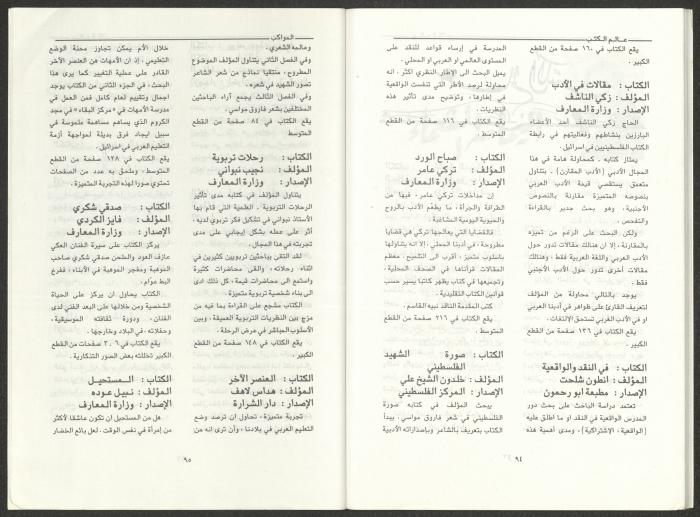 عالم الكتب
يقع الكتاب في ١٦٠ صفحة من القطع
الكبير .
الكتاب : مقالات في الأدب
المؤلف : زكي الناشف
الإصدار : وزارة المعارف
الحاج زكي الناشف أحد الأعضاء
البارزين بنشاطهم وفعاليتهم في رابطة
الكتاب الفلسطينيين في اسرائيل .
يمتاز كتابه ، كمحاولة هامة في هذا
المجال الأدبي ( الأدب المقارن ) ، بتناول
متعمق يستقصي قيمة الأدب العربي
بنصوصه المتميزة مقارنة بالنصوص
الأجنبية، وهو بحث جدير بالقراءة
والتفحص .
ولكن البحث على الرغم من تميزه
بالمقارنة ، إلا ان هنالك مقالات تدور حول
الأدب العربي واللغة العربية فقط ، وهنالك
مقالات أخرى تدور حول الأدب الأجنبي
فقط .
يوجد بالتالي محاولة من المؤلف
لتعريف القارئ على ظواهر في أدبنا العربي
او في الأدب الغربي تستحق الإلتفات .
يقع الكتاب في ١٣٦ صفحة من القطع
الكبير .
الكتاب : في النقد والواقعية
المؤلف : انطون شلحت
الإصدار : مطبعة ابو رحمون
تعتمد دراسة الباحث على بحث دور
المدرس الواقعية في النقد او ما اطلق عليه
(الواقعية ، الإشتراكية) ، ومدى أهمية هذه
المدرسة في إرساء قواعد للنقد على
المستوى العالمي او العربي او المحلي .
يميل البحث الى الإطار النظري أكثر ، انه
محاولة لرصد الأطر التي تنفست الواقعية
في إطارها ، وتوضيح مدى تأثير هذه
النظريات .
يقع الكتاب في ١١٦ صفحة من القطع
المتوسط .
الكتاب : صباح الورد
المؤلف : تركي عامر
الإصدار : وزارة المعارف
إن مداخلات تركي عامر ، فيها من
الطرافة والجرأة ، ما يطعّم الأدب بالروح
والحيوية اليومية المشاغبة .
فالقضايا التي يعالجها تركي هي قضايا
مطروحة ، في أدبنا المحلي ، إلا انه يتناولها
بأسلوب متميز ، أقرب الى التشيح . معظم
المقالات قرأناها في الصحف المحلية ،
وتجميعها في كتاب يظهر كاتبا يسير حسب
قوانين الكتاب التقليدية .
كتب المقدمة الناقد نبيه القاسم .
يقع الكتاب في ٢١٦ صفحة من القطع
المتوسط .
الكتاب : صورة الشهيد
الفلسطيني
المؤلف : خلدون الشيخ علي
الإصدار : المركز الفلسطيني
يبحث المؤلف في كتابه صورة
الفلسطيني في شعر فاروق مواسي. يبدأ
الكتاب بتعريف بالشاعر وبإصداراته الأدبية
٩٤
المواكب
وعالمه الشعري .
وفي الفصل الثاني يتناول المؤلف الموضوع
المطروح ، منتقيا نماذج من شعر الشاعر
تصور الشهيد في شعره .
وفي الفصل الثالث يجمع آراء الباحثين
المتعلقين بشعر فاروق مواسي .
يقع الكتاب في ٨٤ صفحة من القطع
المتوسط
الكتاب : رحلات تربوية
المؤلف : نجيب نبواني
الإصدار : وزارة المعارف
يتناول المؤلف في كتابه مدى تأثير
الرحلات التربوية ، العلمية التي قام بها
الأستاذ نبواني في تشكيل فكر تربوي لديه ،
أثر على عمله بشكل إيجابي على مدى
تجربته في هذا المجال .
لقد التقى بباحثين تربويين كثيرين في
اثناء رحلاته ، والقى محاضرات كثيرة
واستمع الى محاضرات قيمة ، كل ذلك ادى
الى بناء شخصية تربوية متميزة .
الكتاب مشجع على القراءة بما فيه من
مزج بين النظريات التربوية العميقة ، وبين
الأسلوب المباشر في عرض الرحلة .
يقع الكتاب في ١٤٨ صفحة من القطع
الكبير .
الكتاب : العنصر الآخر
المؤلف : هداس لاهف
الإصدار : دار الشرارة
تجربة متميزة ، تحاول ان ترصد وضع
التعليم العربي في بلادنا ، وأن ترى انه من
خلال الأم يمكن تجاوز محنة الوضع
التعليمي ، إذ ان الأمهات هن العنصر الآخر
القادر على عملية التغيير كما يرى هذا
البحث ، في الجزء الثاني من الكتاب يوجد
اجمال وتقييم لعام كامل فمن العمل في
مدرسة الأمهات في «مركز البقاء» في مجد
الكروم الذي يساهم مساهمة ملموسة في
سبيل ايجاد فرق بديلة لمواجهة أزمة
التعليم العربي في اسرائيل .
يقع الكتاب في ١٢٨ صفحة من القطع
المتوسط ، وملحق به عدد من الصفحات
تحتوي صورا لهذه التجربة المتميزة .
الكتاب : صدقي شكري
المؤلف : فايز الكردي
الإصدار : وزارة المعارف
يركز الكتاب على سيرة الفنان العكي
عازف العود والملحن صدقي شكري صاحب
الموهبة ومفجر الموهبة في الأبناء ، ففرع
البط عوّام .
الكتاب يحاول ان يركز على الحياة
الشخصية ومن خلالها على البعد الفني لدى
الفنان ، ودورة ثقافته الموسيقية ،
وحفلاته ، في البلاد وخارجها .
يقع الكتاب في ٣٠٦ صفحات من القطع
الكبير تخللته بعض الصور التذكارية .
الكتاب : المستحيل
المؤلف : نبيل عوده
الإصدار : وزارة المعارف
هل من المستحيل أن تكون عاشقا لأكثر
من إمرأة في نفس الوقت . لعل بائع الخضار
٩٥